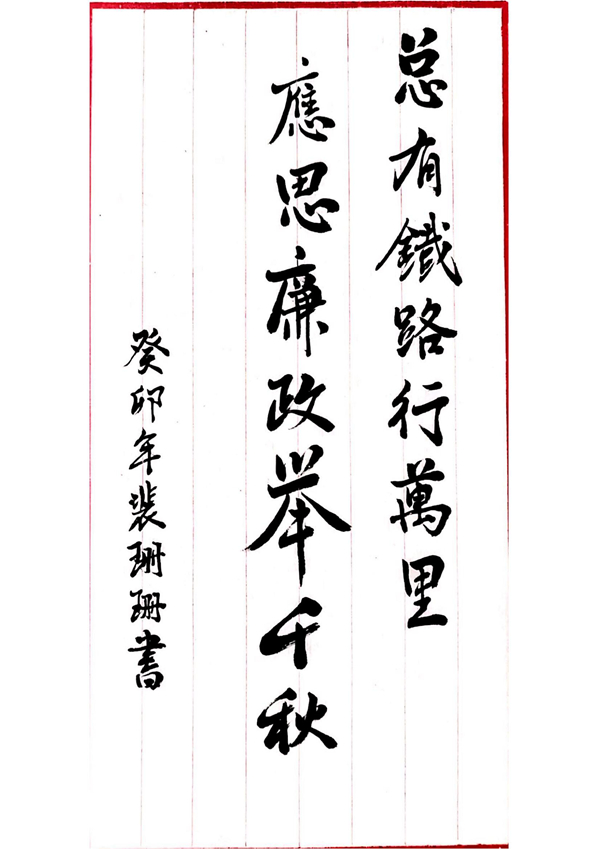 总有鐵路行萬里
應思廉政举千秋
癸卯年裴珊珊書